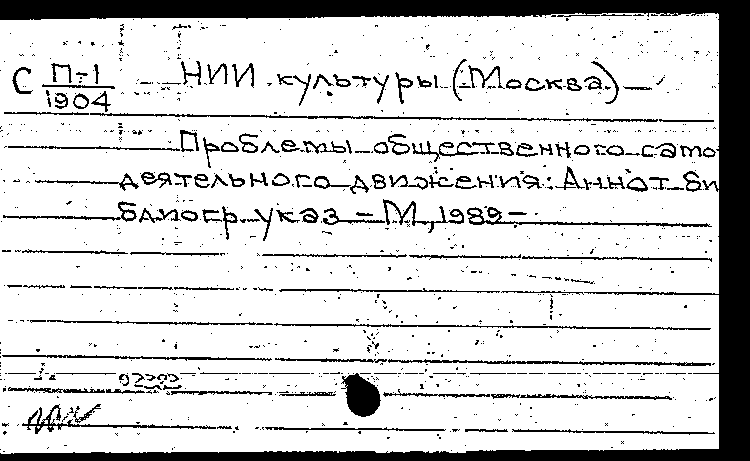 С П-1 НИИ культуры (Москва) —
1904
Проблемы общественного само-
деятельного движения: Аннот. би
блиогр. указ – М., 1989 –